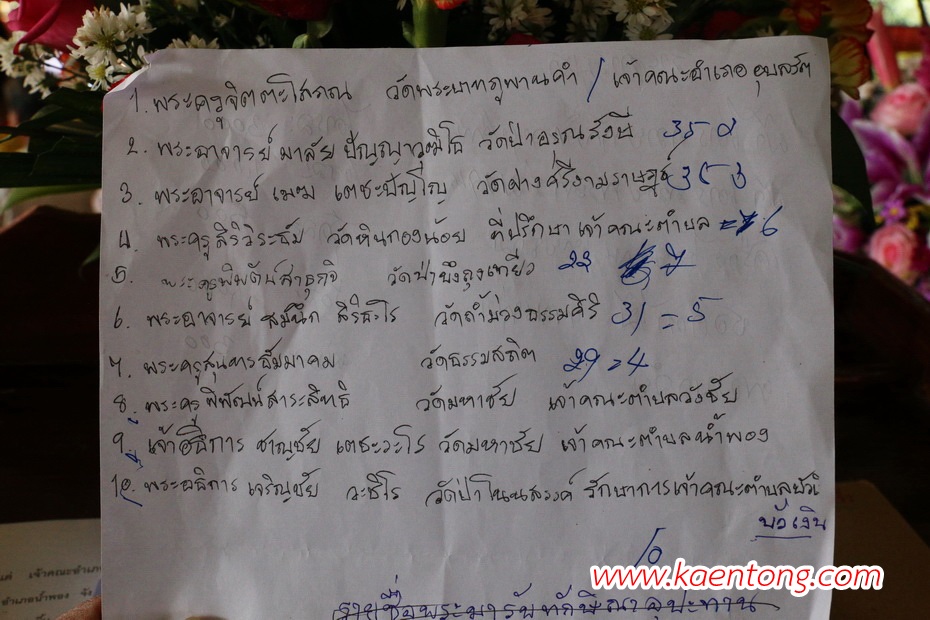 1. พระครูจิตตะโสภณ วัดพระบาทภูพานคำ / เจ้าคณะอำเภออุบลรัต
2. พระอาจารย์ มาลัย ปัญญาวุฒโธ วัดป่าอรุณรังษี 35
3. พระอาจารย์ เมฆ เตชะปัญโญ วัดฝางศรีงามราษฎร์ 35 3
4. พระครูสิริวิระธัม วัดหินกองน้อย ที่ปรึกษาเจ้าคณะตำบล 6
5. พระครูพิพัฒน์สาธุกิจ วัดป่าบึงถุงเทียว 22 7
6. พระอาจารย์ สมนึก สิริธะโร วัดถ้ำม่วงธรรมคีรี 31 = 5
7. พระครูสุนทรธัมมาคม วัดธรรมสถิต 29 = 4
8. พระครูพิพัฒน์สาระสิทธิ วัดมหาชัย เจ้าคณะตำบลวังชัย
9. เจ้าอธิการ ชาญชัย เตชะวะโร วัดมหาชัย เจ้าคณะตำบลน้ำพอง
10. พระอธิการ เจริญชัย วะชิโร วัดป่าโนนสวรรค์ รักษาการเจ้าคณะตำบล
บัวเงิน
10
รายชื่อพระมารับทักษิณาอุปะทาน
www.kaentong.com